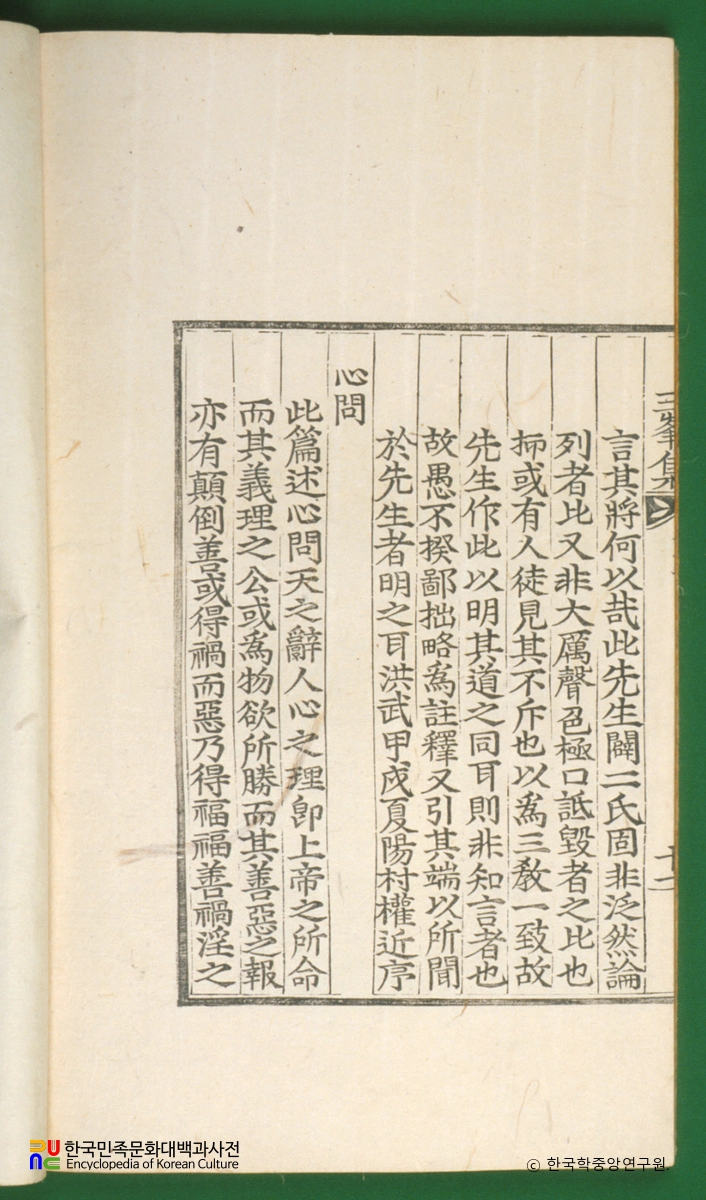 三峯集
十二
言其將何以哉此先生闢二氏固非泛然論
列者比又非大厲聲色極口詆毀者之比也
抑或有人徒見其不斥也以爲三教一致故
先生作此以明其道之同耳則非知言者也
故愚不揆鄙拙略爲註釋又引其端以所聞
於先生者明之耳洪武甲戌夏陽村權近序
心問
此篇述心問天之辭人心之理卽上帝之所命
而其義理之公或爲物欲所勝而其善惡之報
亦有顚倒善或得禍而惡乃得福福善禍淫之
한국민족문화대백과사전
Encyclopedia of Korean Culture
© 한국학중앙연구원